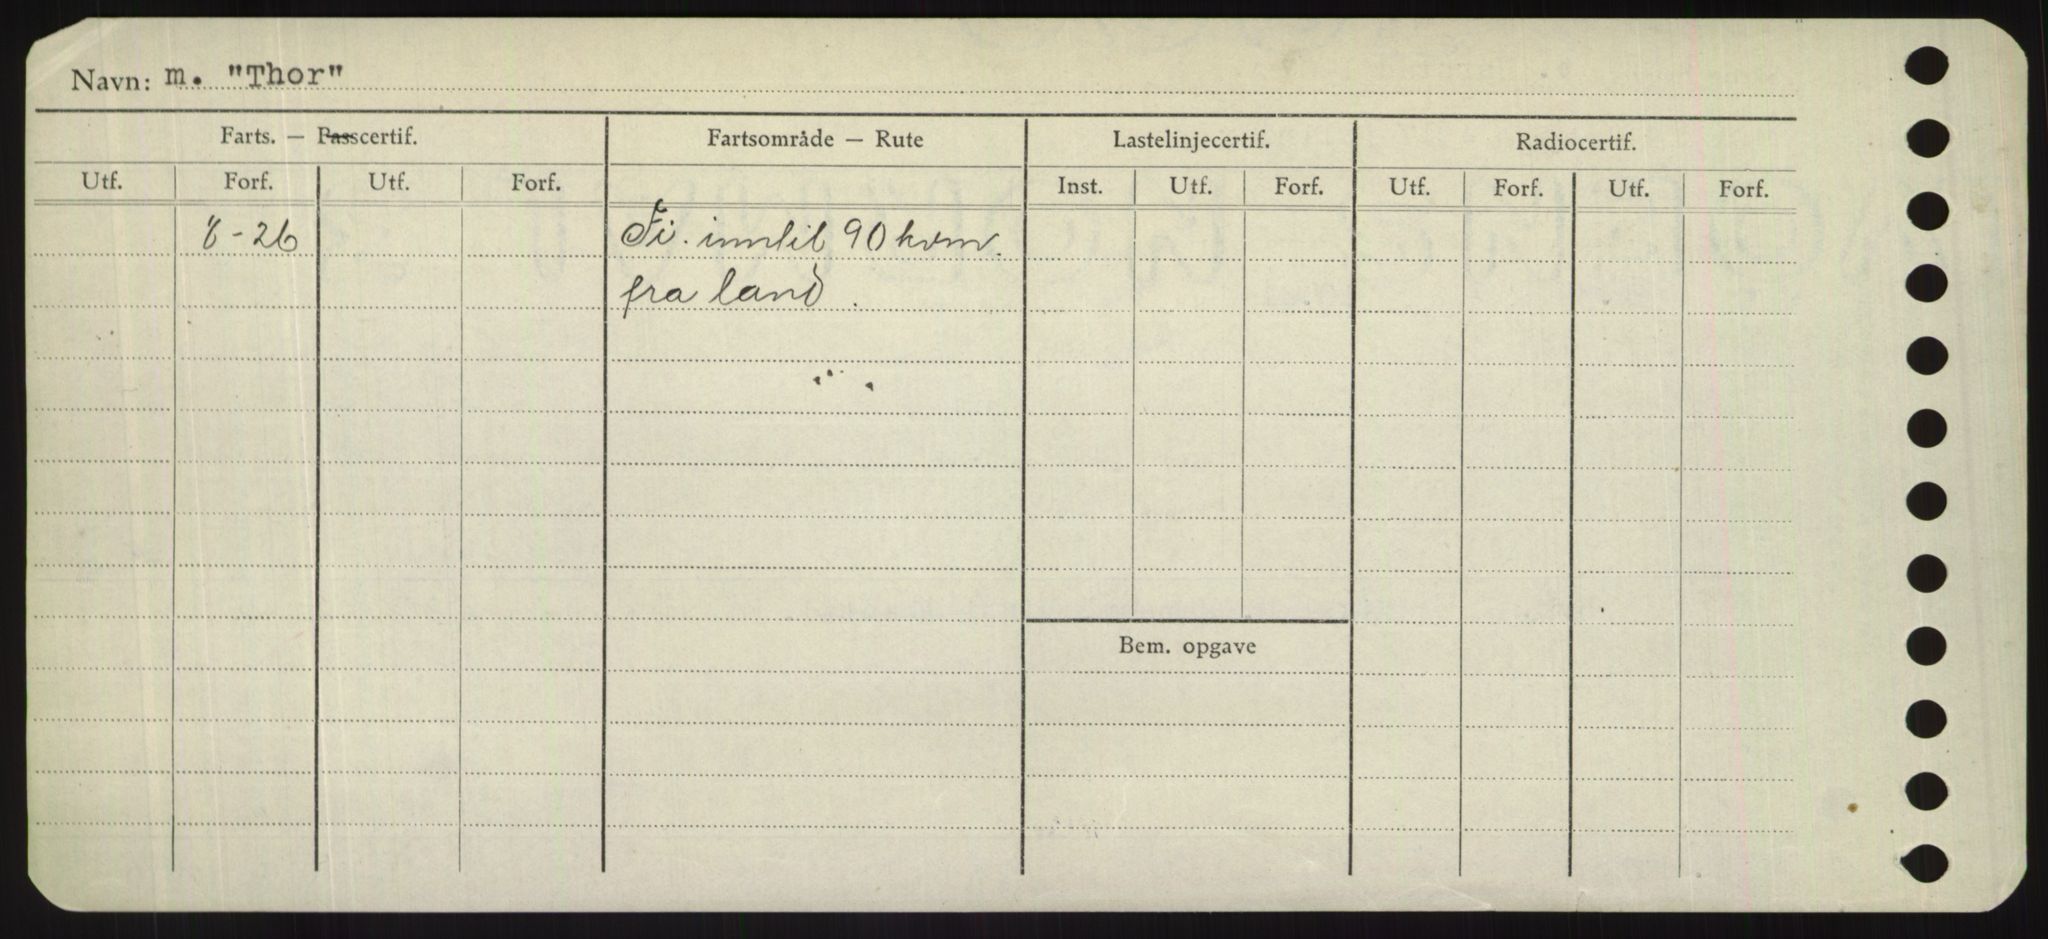 Navn: m. "Thor"
Farts. — Passcertif. Fartsområde — Rute Lastelinjecertif. Radiocertif.
Utf. Forf. Utf. Forf. Inst. Utf. Forf. Utf. Forf. Utf. Forf.
8-26 Fi. inntil 90 kvm.
fra land.
Bem. opgave